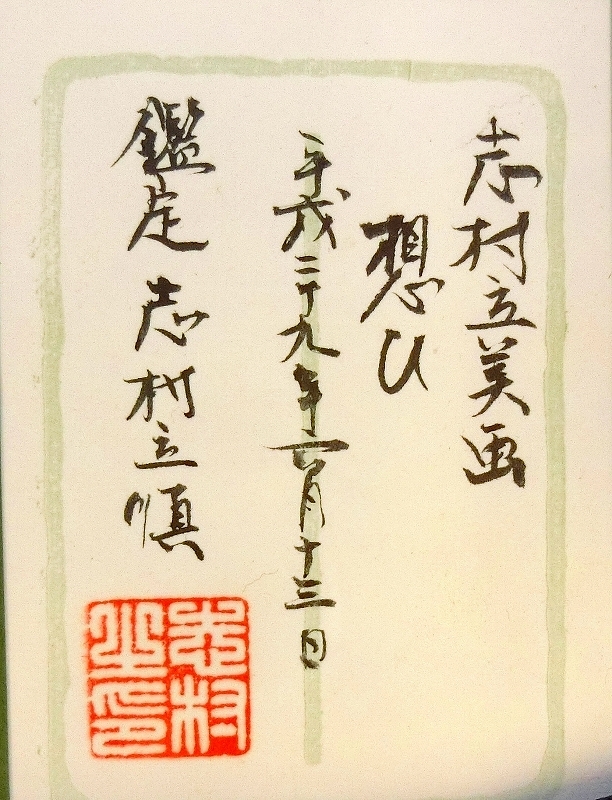 志村立美画
想ひ
平成二十九年六月十三日
鑑定 志村立順
志村